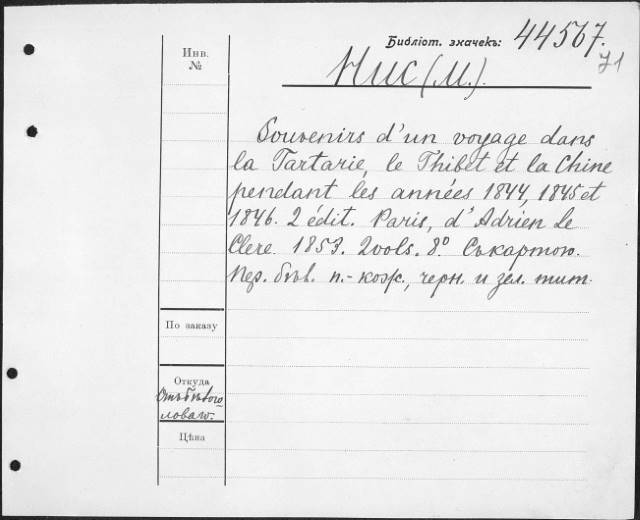 Библіот. значекъ: 44567.
71
Инв.
№
Huc (M.).
Souvenirs d'un voyage dans
la Tartarie, le Thibet et la Chine
pendant les années 1844, 1845 et
1846. 2 édit. Paris, d'Adrien Le
Clere 1853. 2 vols. 8º Съ картою.
Пер. бѣл. п.-кож., черн. и зел. тит.
По заказу
Откуда
Цѣна